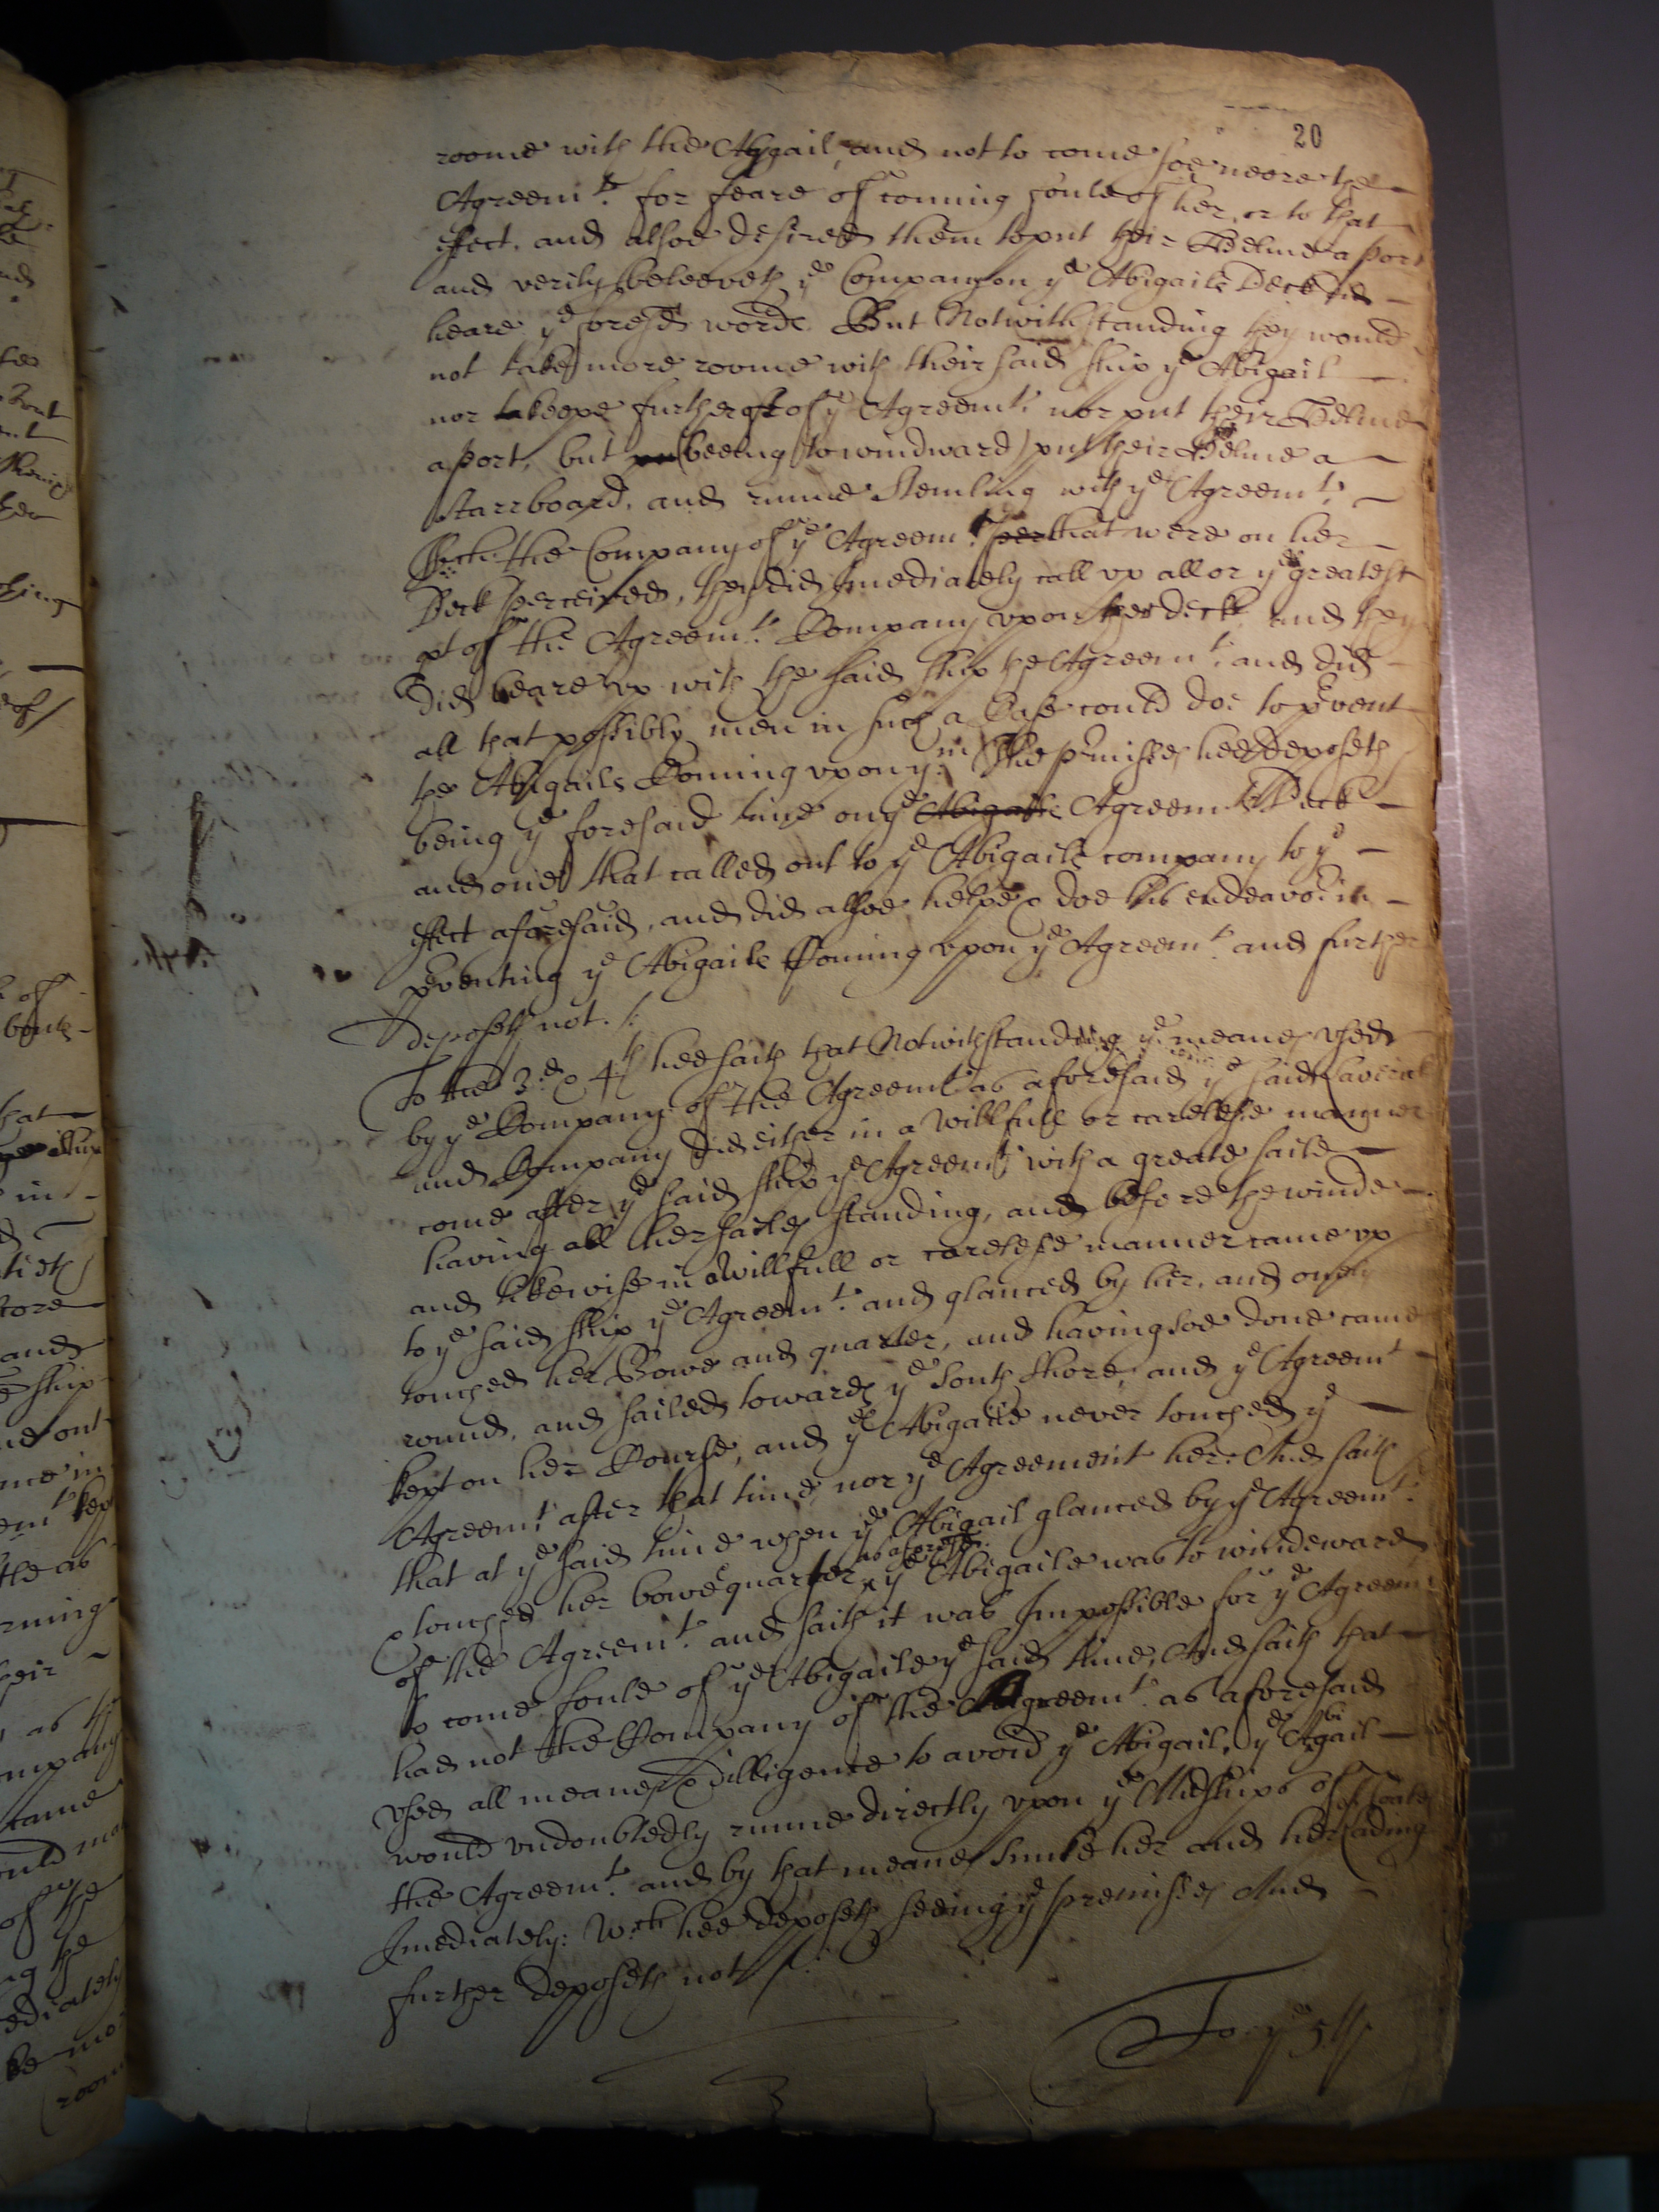 20
roome with the Abgail, and not to come soe neere the
Agreemt. for feare of coming foule of her, or to that
effect. and alsoe desired them to put their Helme a port
and verily beleeveth ye Company on ye Abigails Deck did
heare ye foresd words. But Notwithstanding they would
not take more roome with their said ship ye Abigail
nor keepe further of ye Agreemt. nor put their Helme
aport, but (beeing to windward) put their Helme a
starrboard, and runne Stemling with ye Agreemt.
Which the Company of ye Agreemt. that were on her
Deck perceived, they did Imediately call vp all or ye greatest
pt of the Agreemts. Company vpon her deck and they
did beare vp with the said ship the Agreemt. and did
all that possibly men in such a Case could doe to pevent
the Abigails Coming vpon ym. The pmisses hee deposeth
being ye foresaid time on ye Abigails Agreemts Deck
and one that called out to ye Abigails company to ye
effect aforesaid, and did alsoe helpe & doe his endeavor. in
peventing ye Abigails Coming vpon ye Agreemt. and further
deposeth not.
To the 3d. & 4th hee saith that Notwithstanding ye meanes vsed
by ye Company of the Agreemt as aforesaid ye said
and Company did either in a Willfull or carelesse manner
come after ye said ship ye Agreemt with a greate saile
having all her sailes standing, and before the winde
and likewise in a Willfull or carelesse manner came vp
to ye said ship ye Agreemt. and glanced by her, and onely
touched her Bowe and quarter, and having soe done came
round, and sailed towards ye South Shore, and ye Agreemt
kept on her Course, and ye Abigaile never touched ye
Agreemt. after that time nor ye Agreement her. And saith
that at ye said time when ye Abigail glanced by ye Agreemt.
& touched her bowe & quarter as aforesd. ye Abigaile was to windeward
of the Agreemt. and saith it was Impossible for ye Agreemt
to come foule of ye Abigaile ye said time, And saith that
had not the Company of the Agreemt. as aforesaid
vsed all meanes & dilligence to avoid ye Abigail, ye Abigail
would vndoubtedly runne directly vpon ye Midships of
the Agreemt. and by that meanes sunke her and her lading
Imediately: Wch hee deposeth seeing ye premisses And
further deposeth not
To ye 5th